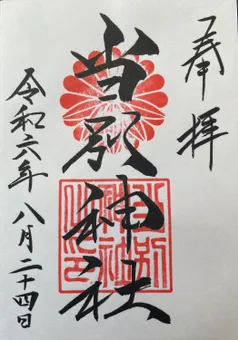 奉拝
当別神社
令和六年八月二十四日